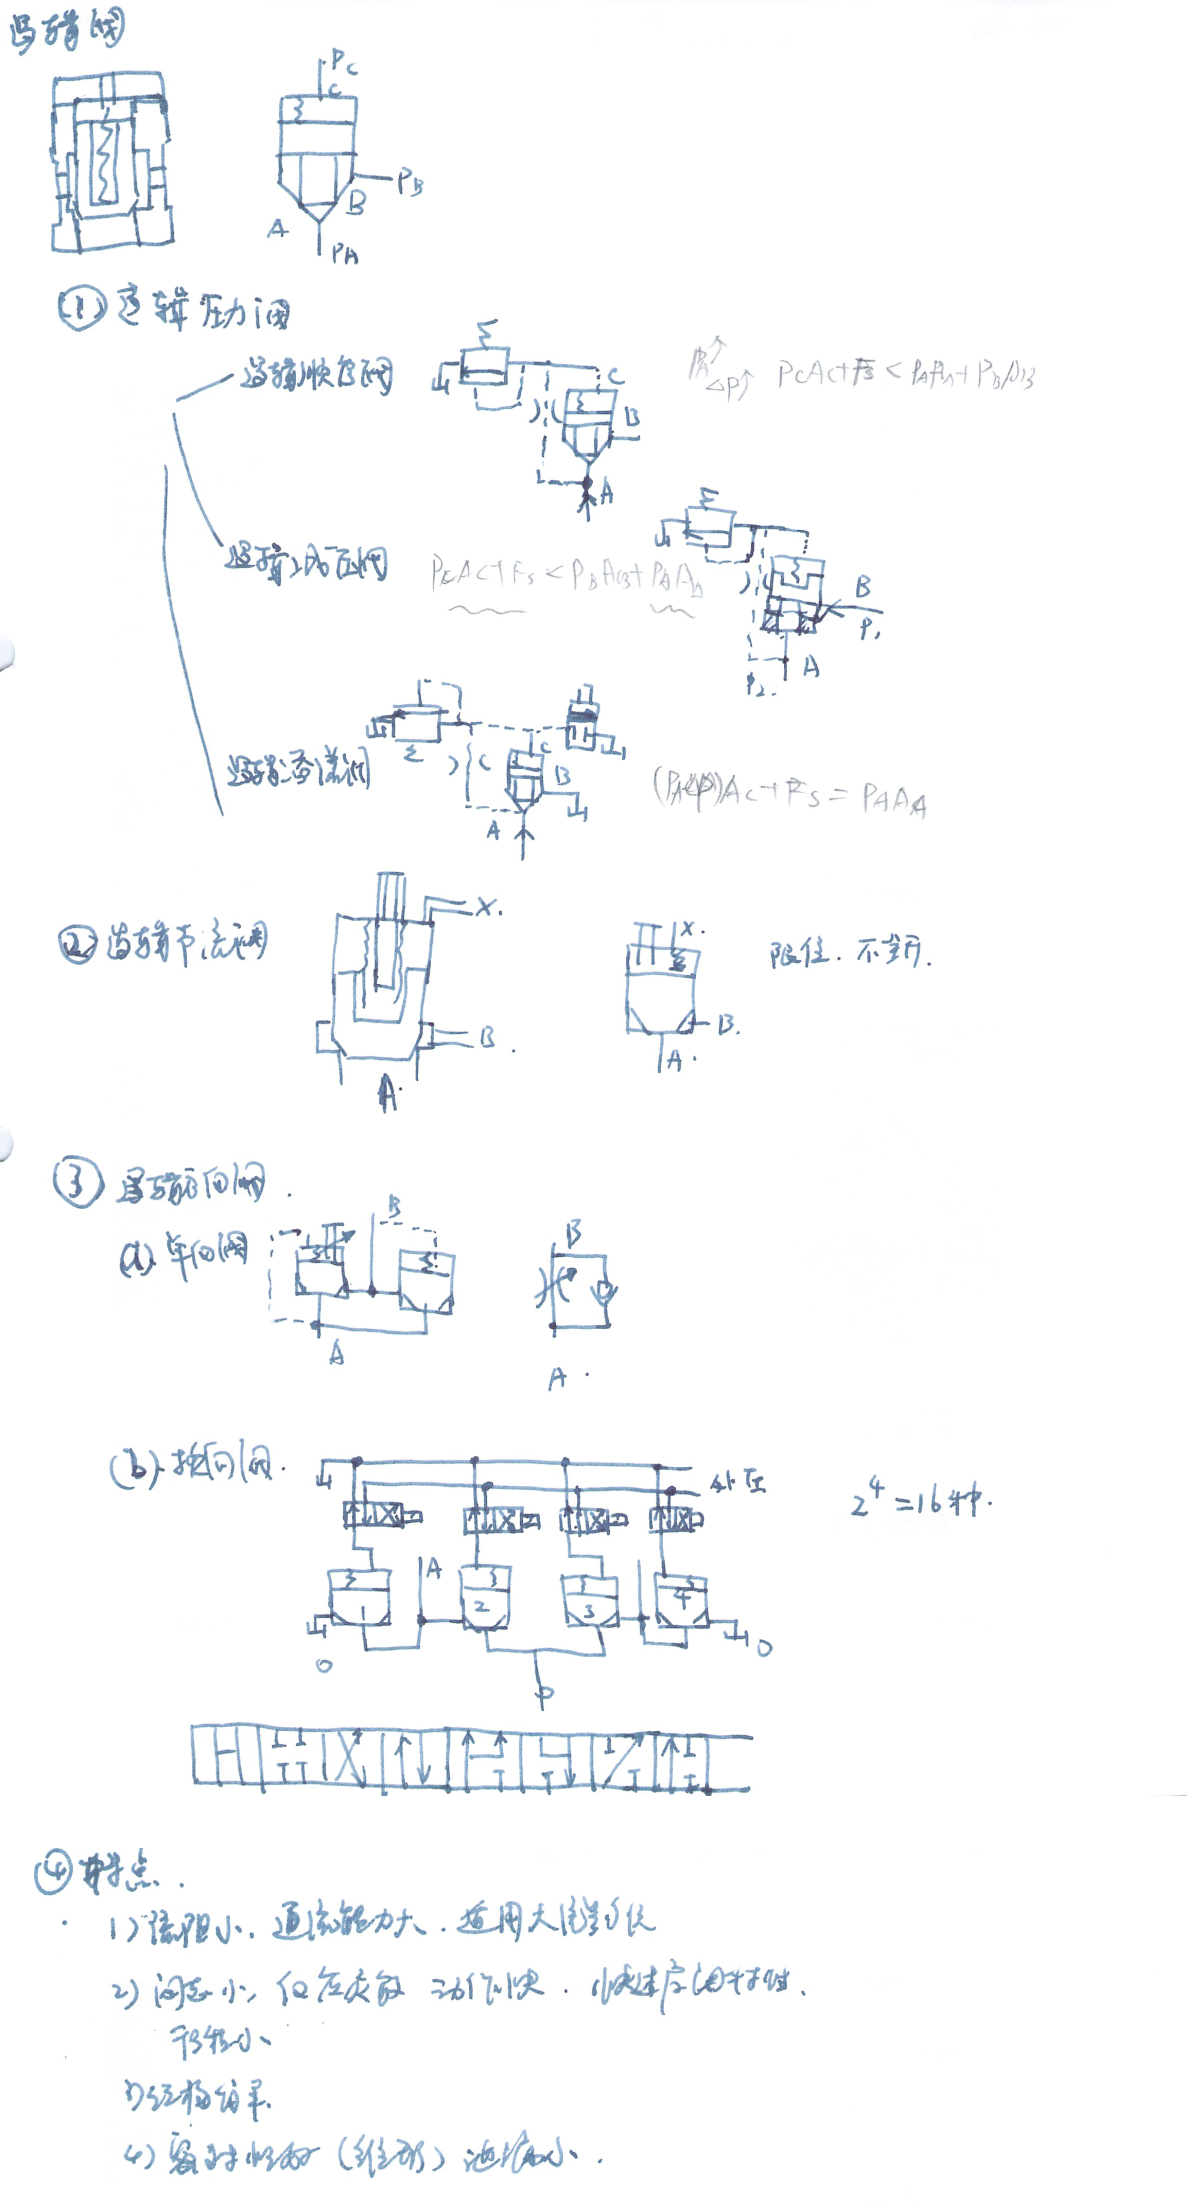 逻辑阀
PC
C
PB
B
A
PA
① 逻辑压力阀
逻辑顺序阀
C
B
A
PA↑ ΔP↑ PCAC+Fs<PAAA+PBAB
逻辑减压阀
PCAC+Fs<PBAB+PAAA
B
P1
A
P2.
逻辑溢流阀
C
B
A
AC+Fs=PAAA
② 逻辑节流阀
X.
B.
A.
X.
B.
A.
限位.不全开.
③ 逻辑方向阀.
(a).单向阀
B
A
B
A.
(b).换向阀.
外压
2^4=16种.
A
1
2
3
4
O
O
P
④ 特点.
1) 流阻小、通流能力大.适用大流量
2) 阀芯小, 动作快.
行程小
3) 结构简单.
4) 密封性好(锥形)泄漏小.